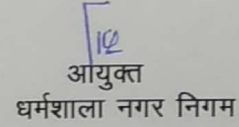 आयुक्त
धर्मशाला नगर निगम